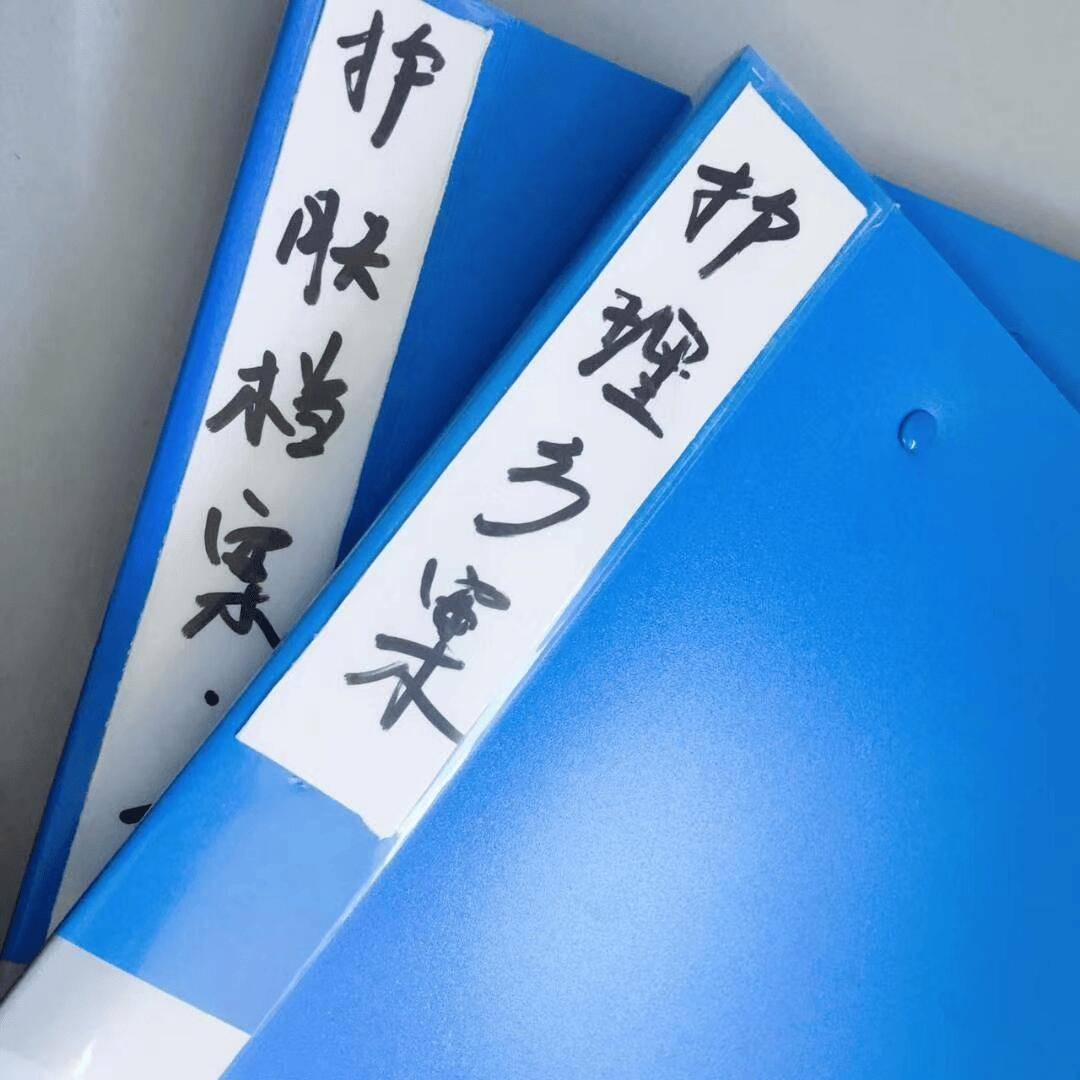 护肤档案
护理方案